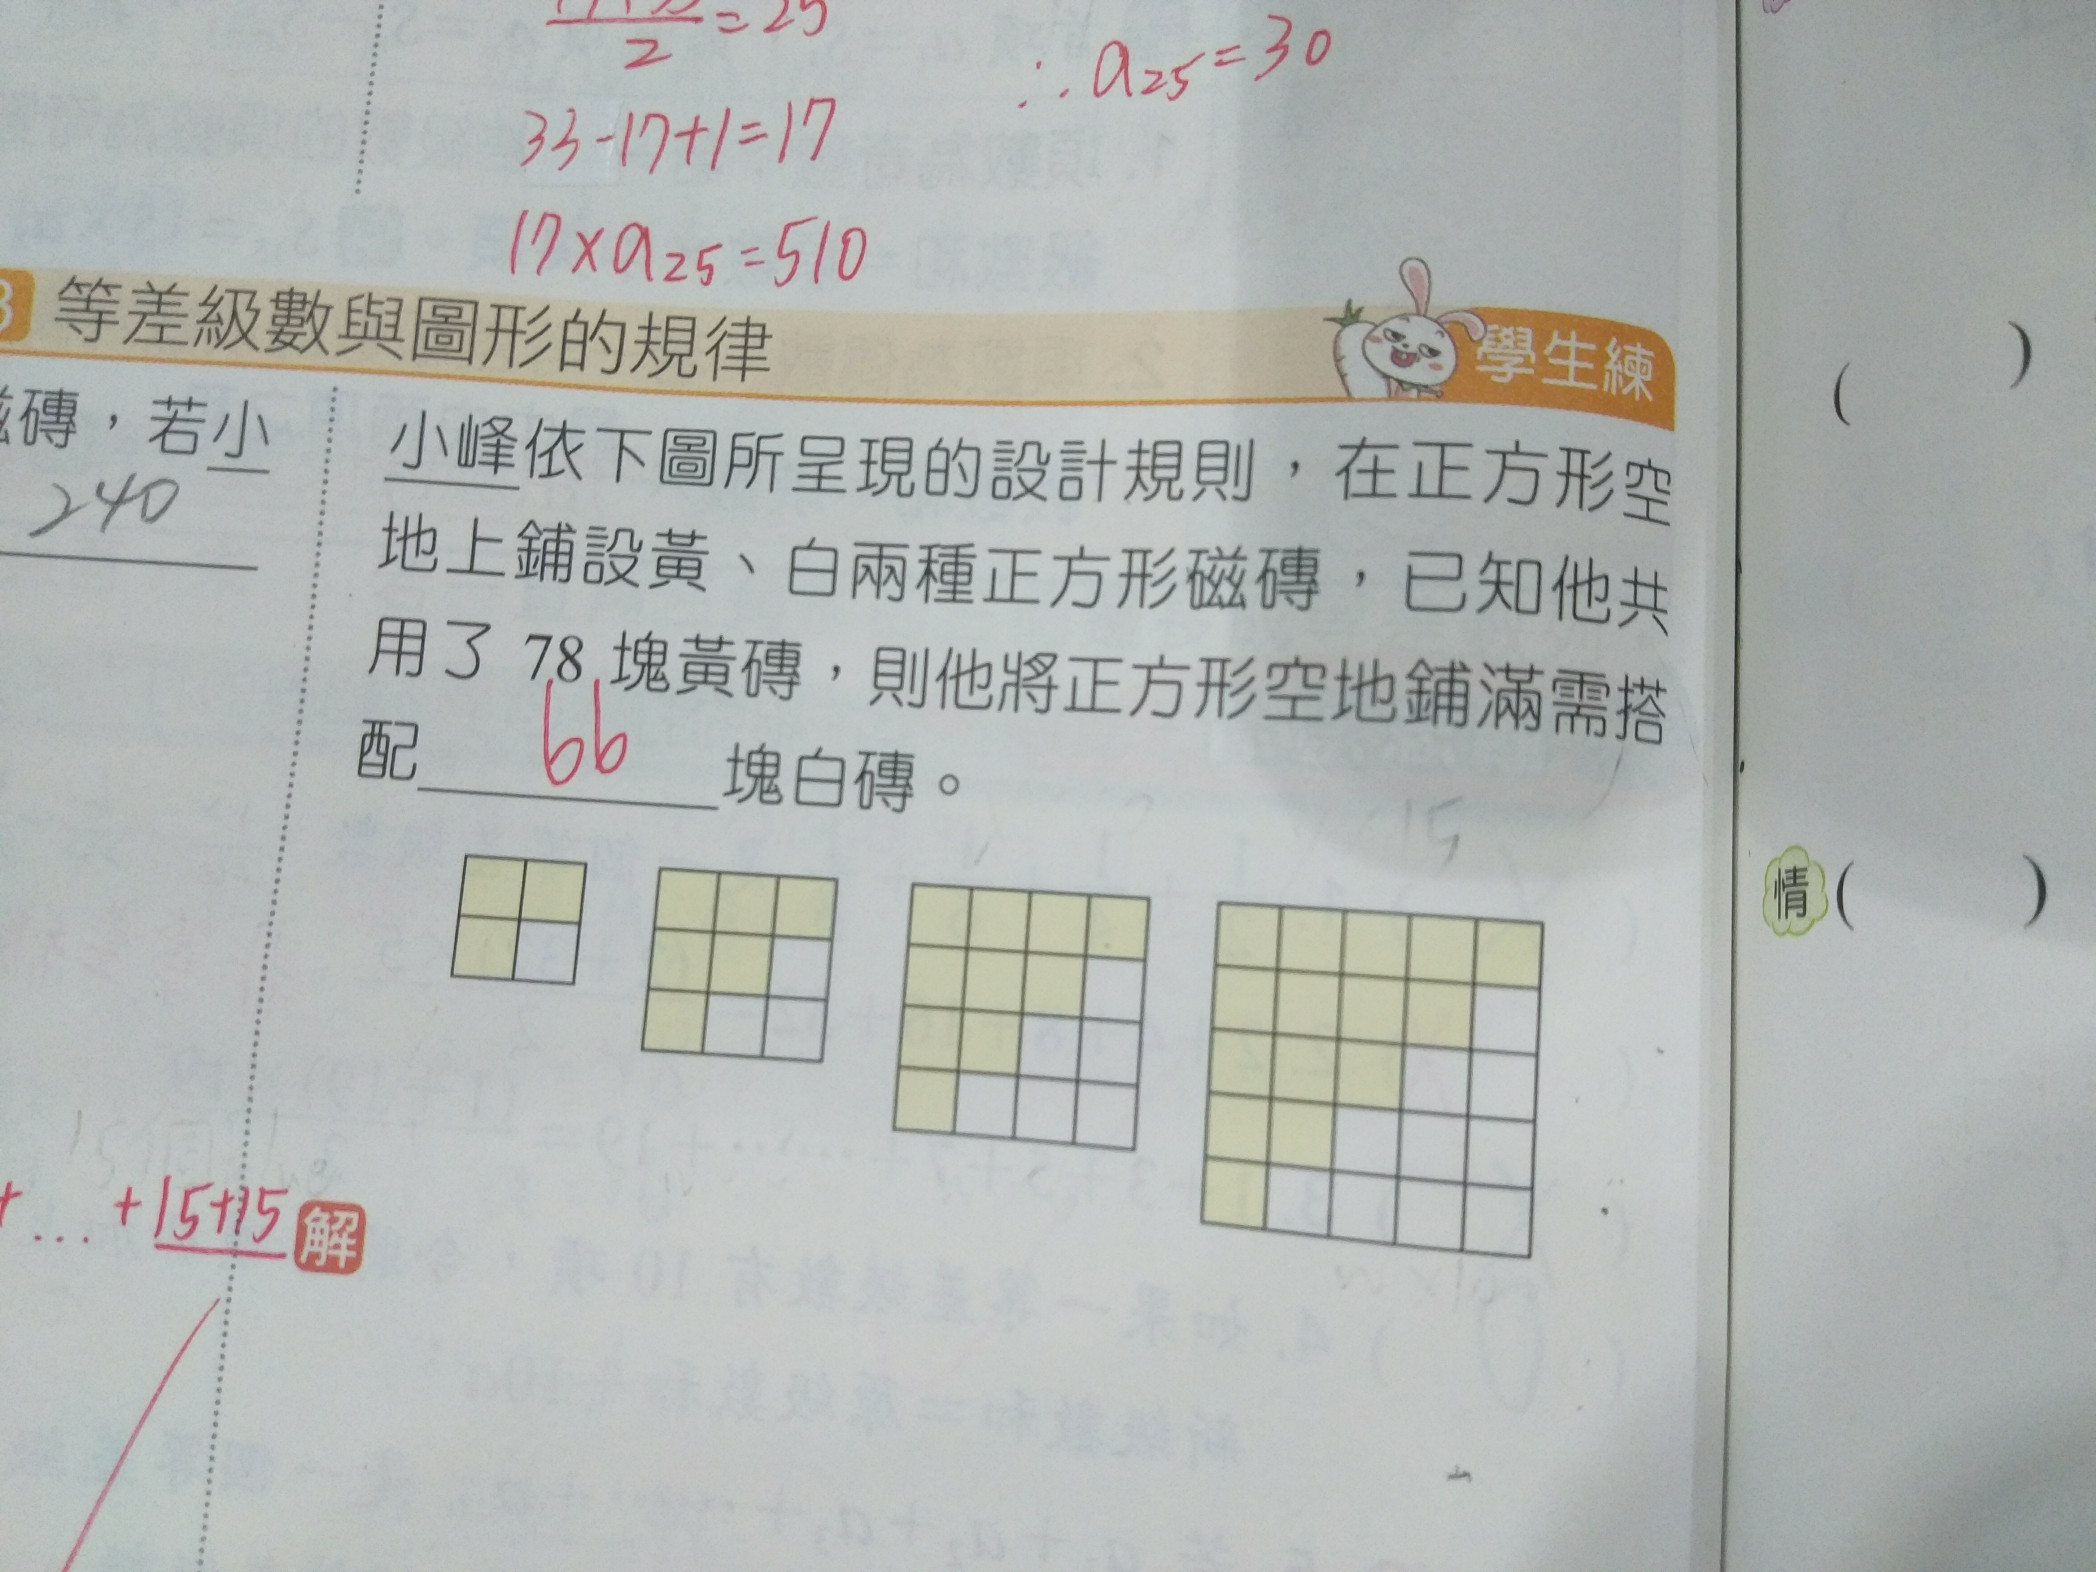 2 = 25
∴ a25 = 30
33-17+1=17
17×a25=510
3 等差級數與圖形的規律
學生練
磚，若小
240
小峰依下圖所呈現的設計規則，在正方形空
地上鋪設黃、白兩種正方形磁磚，已知他共
用了 78 塊黃磚，則他將正方形空地鋪滿需搭
配 66 塊白磚。
+ … +15+15
解
( )
情 ( )